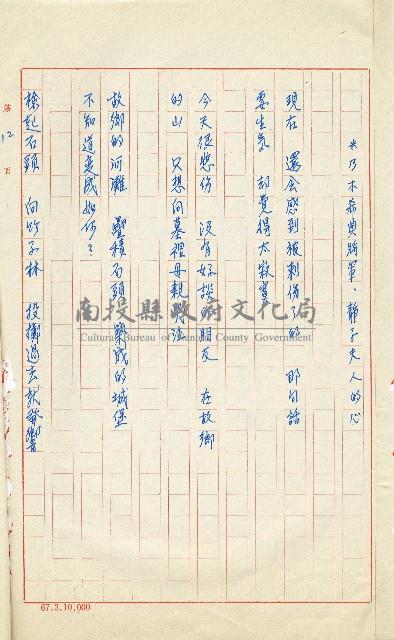 米乃木希典將軍、靜子夫人的心
現在 還会感到被刺傷了的 那句話
要生氣 却覺得太寂寞
今天很悲伤 沒有好談的朋友 在故鄉
的山 只想向墓裡母親
故鄉的河灘 疊積石頭 築成的城堡
不知道变成如何？
檢起石頭 向竹子林 投擲過去就發響
第 12 頁
南投縣政府文化局
Cultural Bureau of Nantou County Government
67.3.10,000